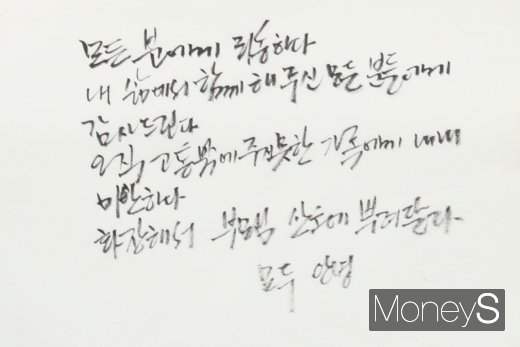 모든 분에게 죄송하다
내 삶에서 함께 해 주신 모든 분들에게
감사드린다
오직 고통밖에 주지 못한 가족에게 내내
미안하다
화장해서 부모님 산소에 뿌려달라.
모두 안녕
MoneyS